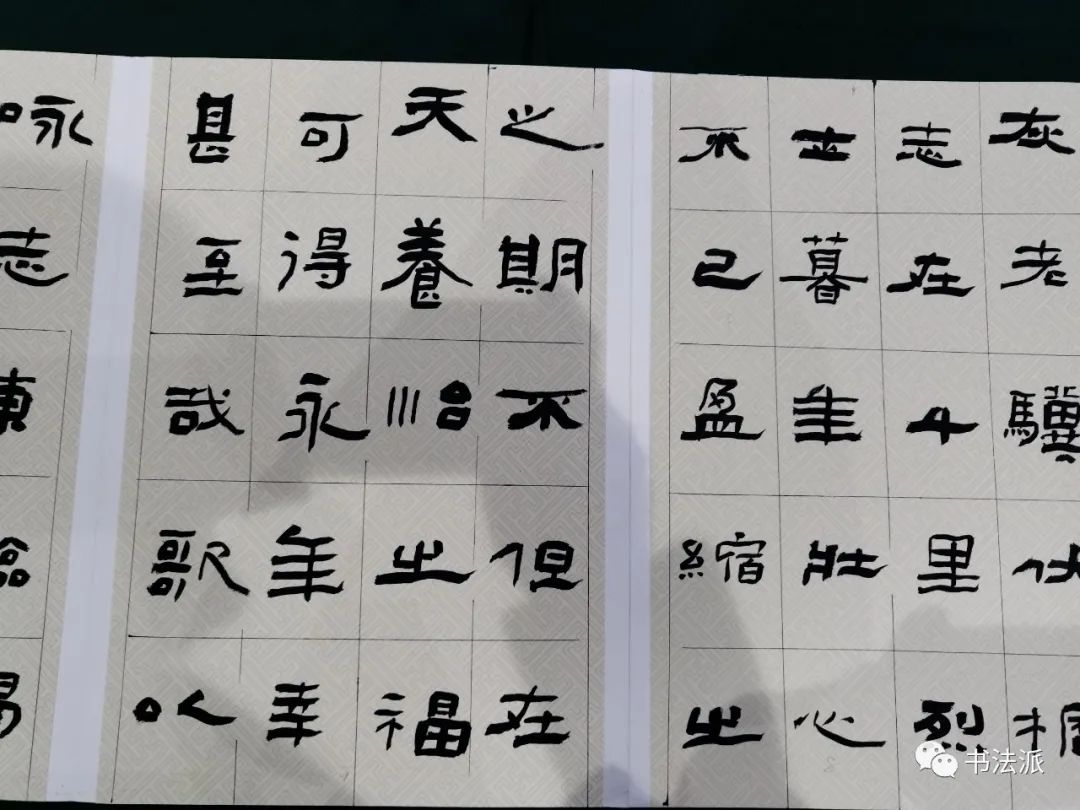 灰老驥伏
志在千里烈
士暮年壯心
不已盈縮之
之期不但在
天養怡之福
可得永年幸
甚至哉歌以
咏志東
书法派